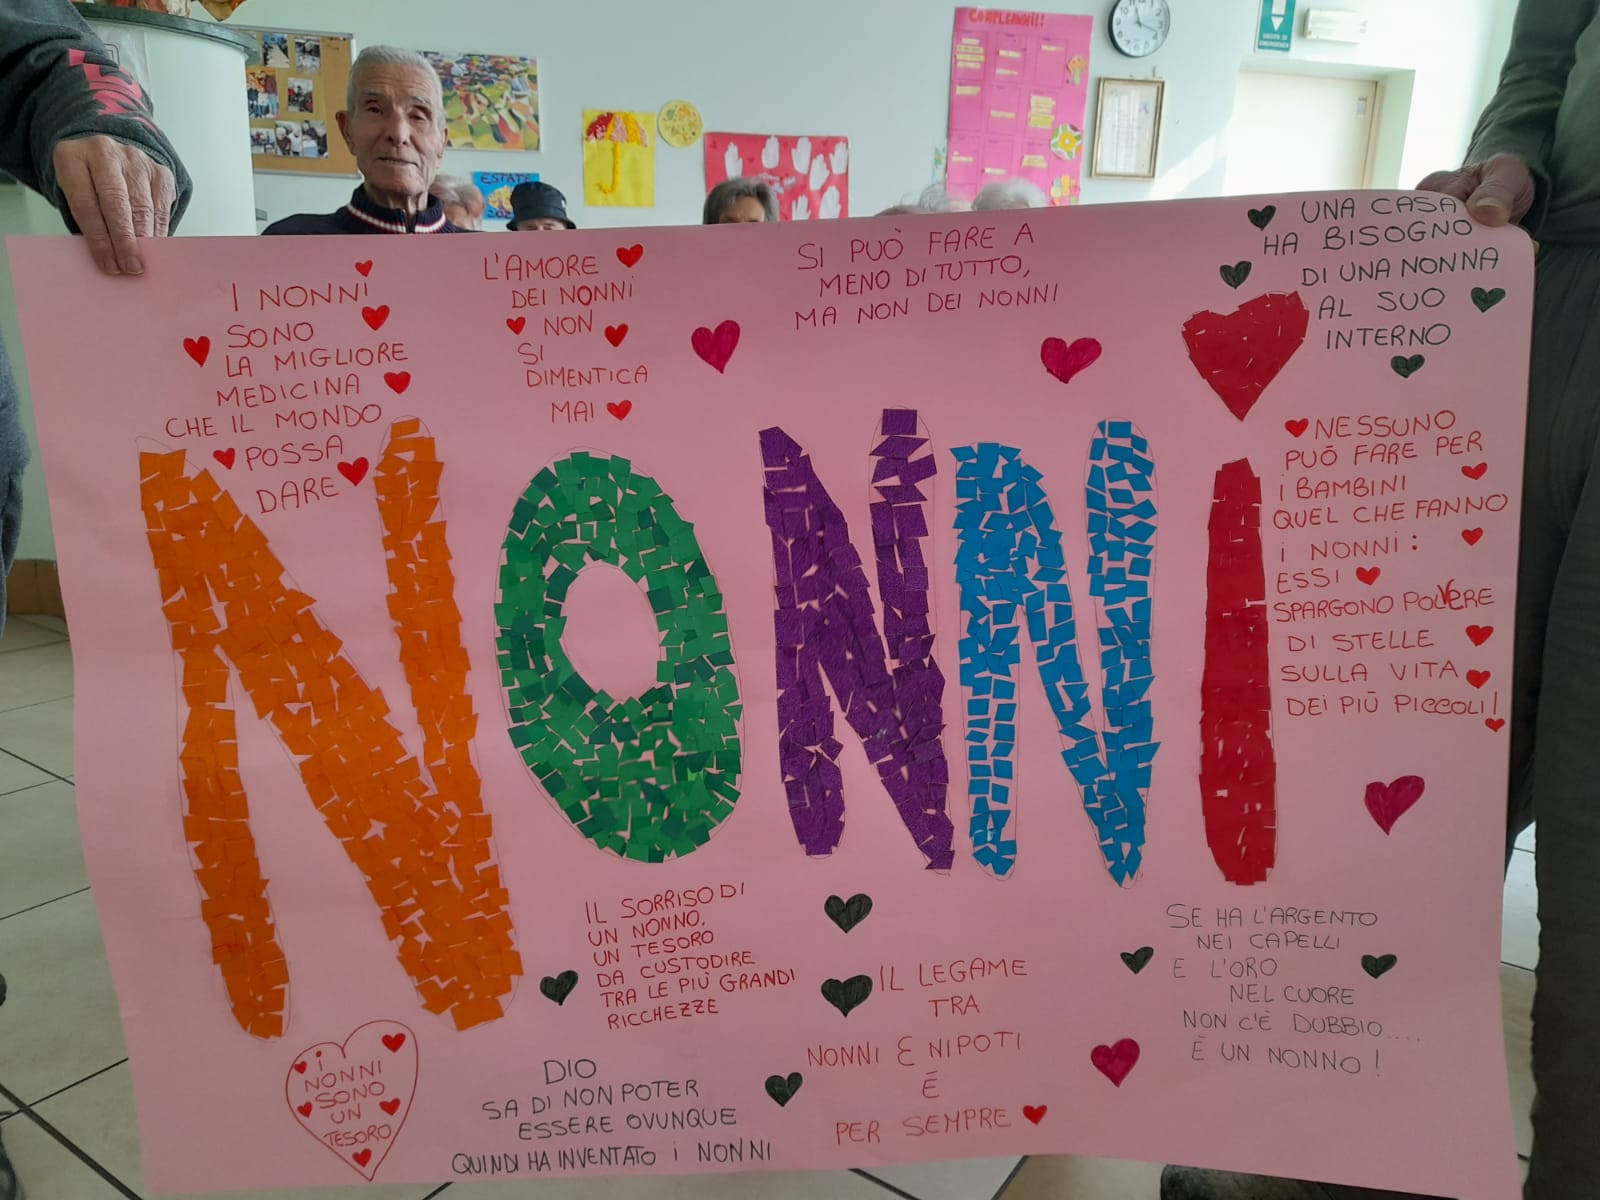 COMPLEANNI!!!
ESTATE
I NONNI
SONO
LA MIGLIORE
MEDICINA
CHE IL MONDO
POSSA
DARE
L'AMORE
DEI NONNI
NON
SI
DIMENTICA
MAI
SI PUÒ FARE A
MENO DI TUTTO,
MA NON DEI NONNI
UNA CASA
HA BISOGNO
DI UNA NONNA
AL SUO
INTERNO
NONNI
NESSUNO
PUÓ FARE PER
i BAMBINI
QUEL CHE FANNO
i NONNI:
ESSI
SPARGONO POLVERE
DI STELLE
SULLA VITA
DEI PIÙ PICCOLI!
IL SORRISO DI
UN NONNO,
UN TESORO
DA CUSTODIRE
TRA LE PIÙ GRANDI
RICCHEZZE
IL LEGAME
TRA
NONNI E NIPOTI
É
PER SEMPRE
SE HA L'ARGENTO
NEI CAPELLI
E L'ORO
NEL CUORE
NON C'È DUBBIO....
È UN NONNO!
i
NONNI
SONO
UN
TESORO
DIO
SA DI NON POTER
ESSERE OVUNQUE
QUINDI HA INVENTATO i NONNI